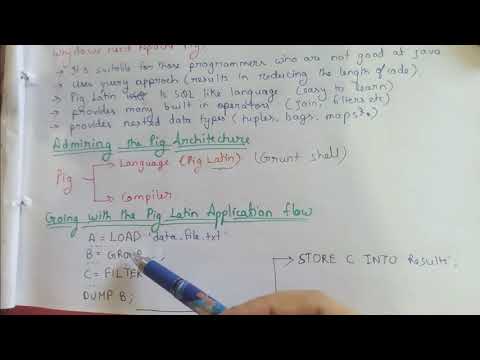 Why does need Apache Pig?
→ It's suitable for those programmers who are not good at java
→ Uses query approch (results in reducing the length of code).
→ Pig Latin is SQL like language (easy to learn)
→ provides many built in operators (join, filters etc)
→ provides nested data types (tuples, bags, maps).
Admiring the Pig Architecture
Pig
→ Language (Pig Latin) (Grunt shell)
→ Compiler
Going with the Pig Latin Application flow
A = LOAD 'data_file.txt'
B = GROUP
C = FILTER
DUMP B;
→ STORE C INTO Results;